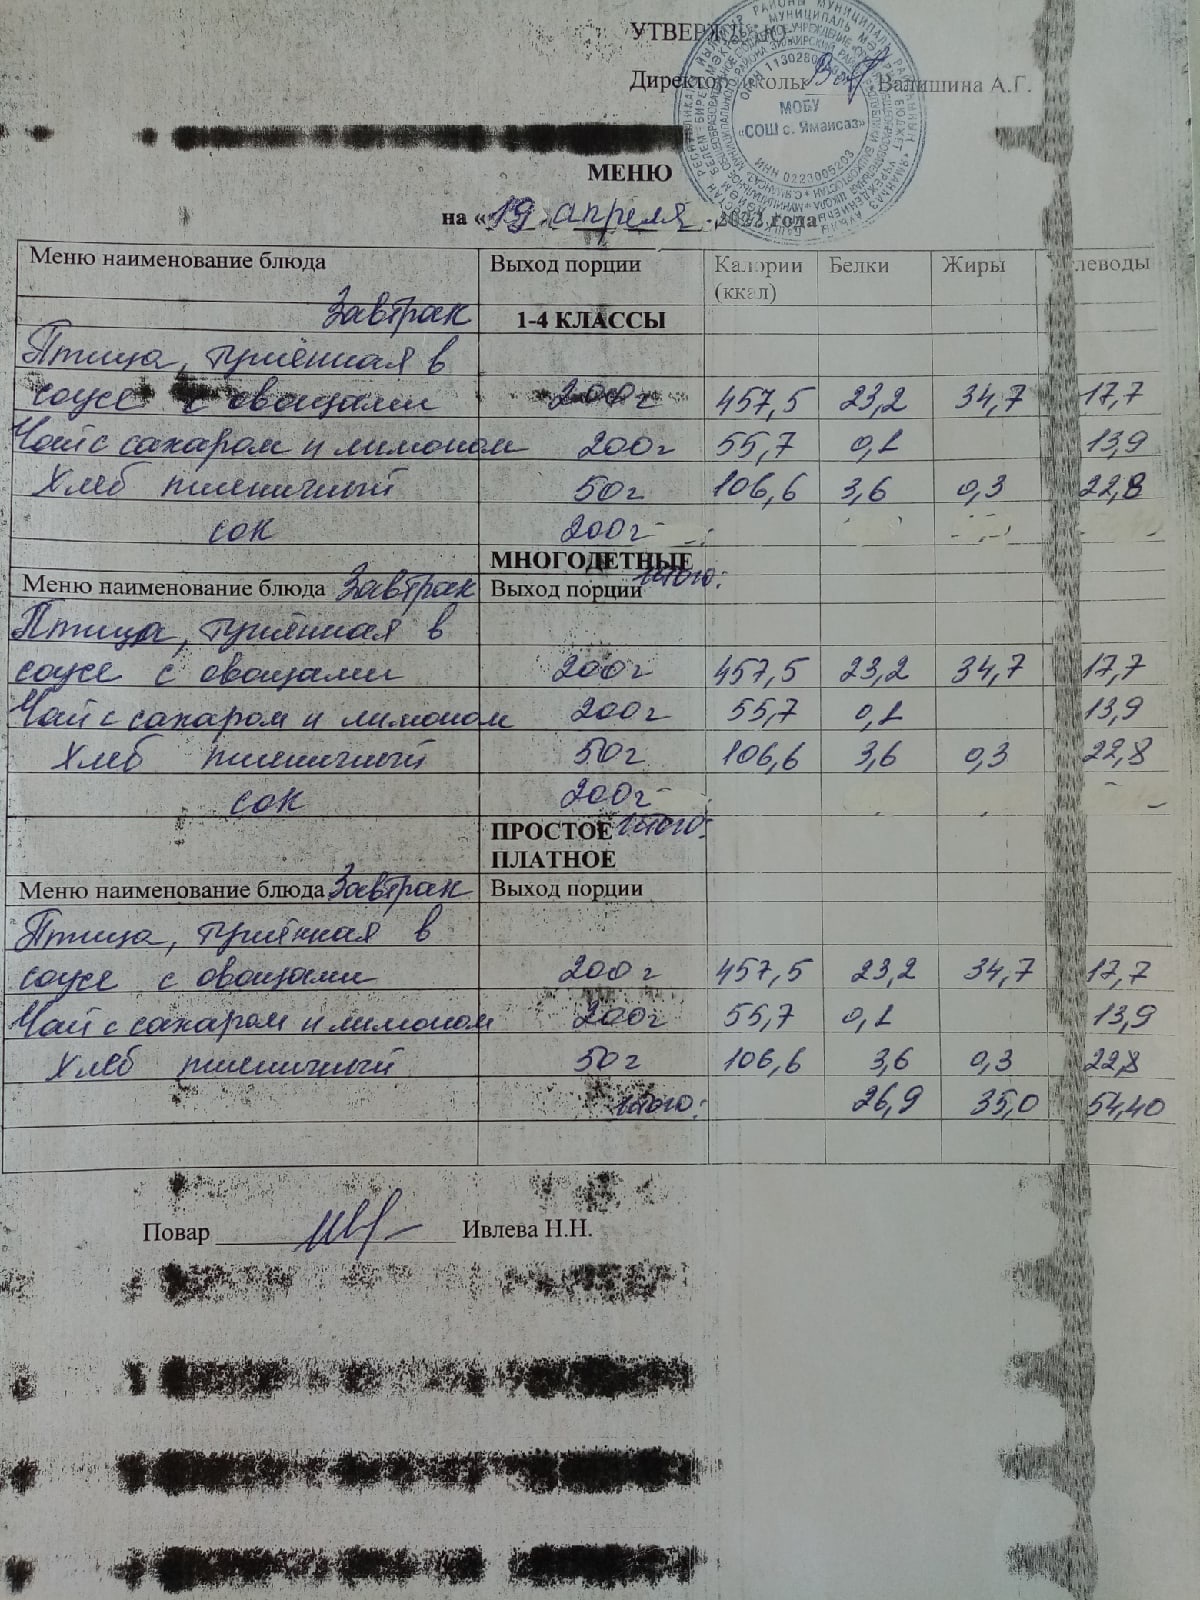 УТВЕРЖДЕНО
Директор школы Валишина А.Г.
МОБУ
«СОШ с. Ямансаз»
ИНН 0223005203
МЕНЮ
на «19» апреля 2022 года
Меню наименование блюда Выход порции Калории (ккал) Белки Жиры леводы
Завтрак 1-4 КЛАССЫ
Птица, тушённая в
соусе с овощами 200г 457,5 23,2 34,7 17,7
Чай с сахаром и лимоном 200г 55,7 0,1 13,9
Хлеб пшеничный 50г 106,6 3,6 0,3 22,8
сок 200г
МНОГОДЕТНЫЕ
итого:
Меню наименование блюда Завтрак Выход порции
Птица, тушённая в
соусе с овощами 200г 457,5 23,2 34,7 17,7
Чай с сахаром и лимоном 200г 55,7 0,1 13,9
Хлеб пшеничный 50г 106,6 3,6 0,3 22,8
сок 200г
ПРОСТОЕ итого:
ПЛАТНОЕ
Меню наименование блюда Завтрак Выход порции
Птица, тушённая в
соусе с овощами 200г 457,5 23,2 34,7 17,7
Чай с сахаром и лимоном 200г 55,7 0,1 13,9
Хлеб пшеничный 50г 106,6 3,6 0,3 22,8
итого: 26,9 35,0 54,40
Повар Ивлева Н.Н.